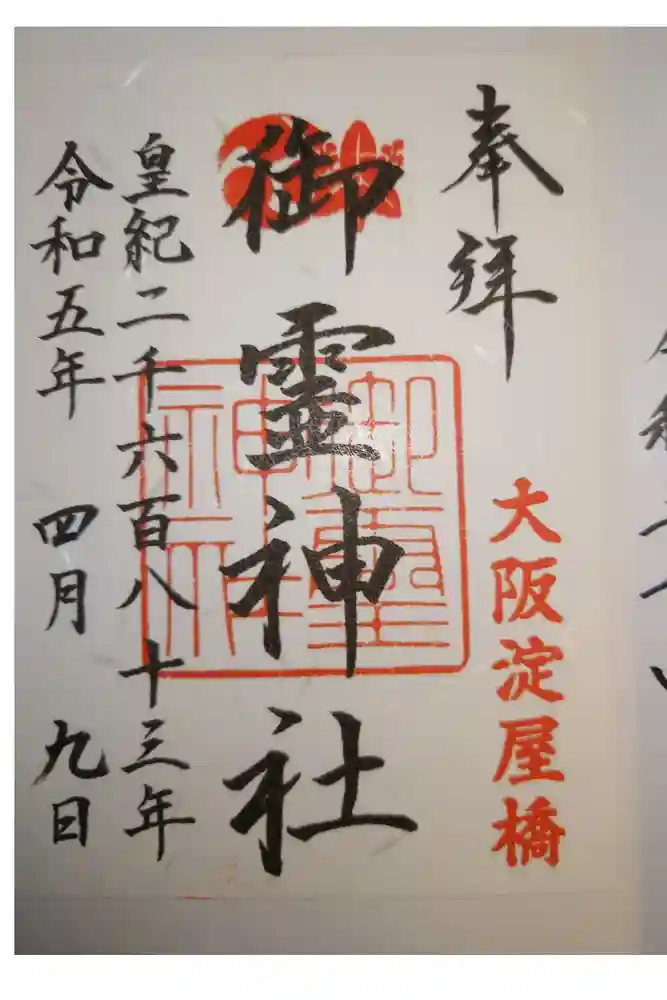 奉拝
大阪淀屋橋
御霊神社
御霊神社
皇紀二千六百八十三年
令和五年 四月 九日